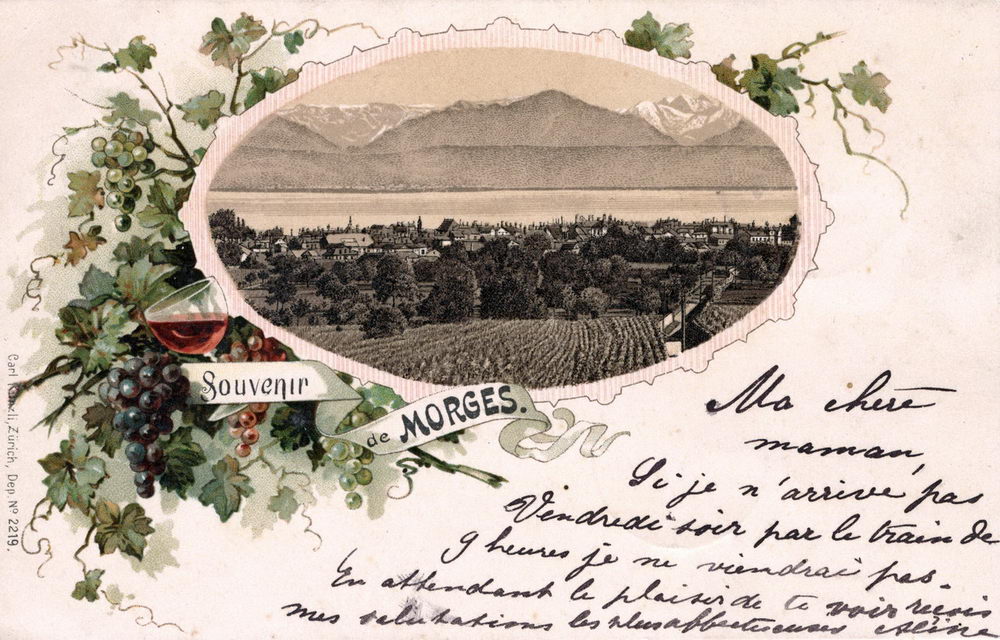 Souvenir
de MORGES.
Carl Künzli, Zürich, Dep. Nº 2219.
Ma chère
maman,
Si je n'arrive pas
Vendredi soir par le train de
9 heures je ne viendrai pas.
En attendant le plaisir de te voir reçois
mes salutations les plus affectueuses